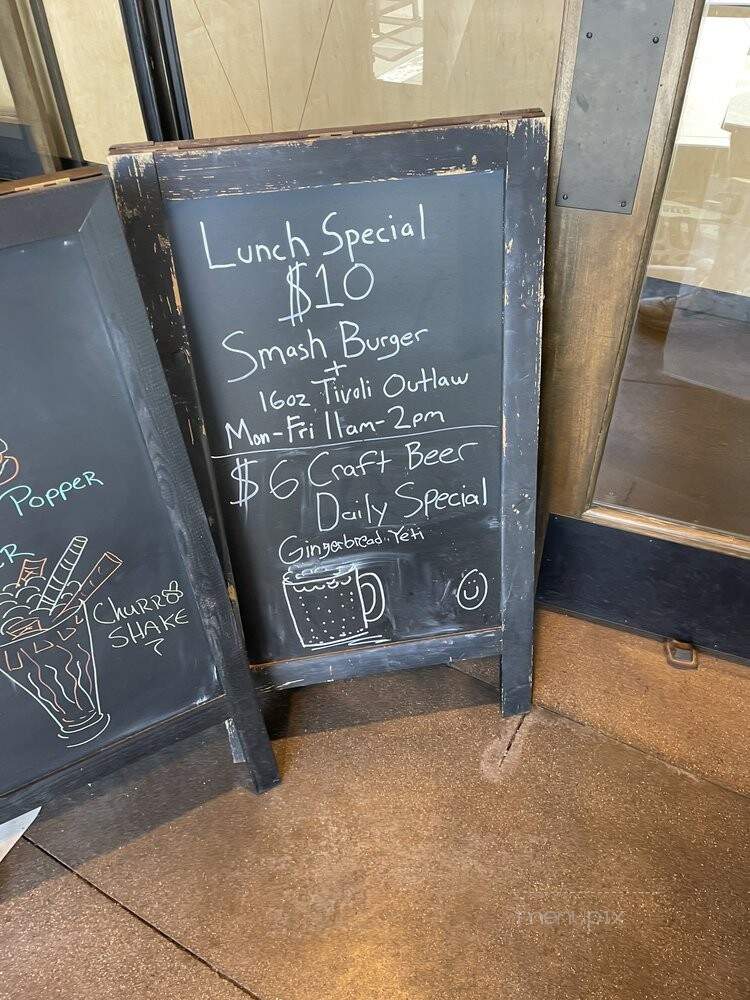 Lunch Special
$10
Smash Burger
+
16oz Tivoli Outlaw
Mon-Fri 11am-2pm
$6 Craft Beer
Daily Special
Gingerbread Yeti
Popper
ER
Churros
SHAKE
menupix